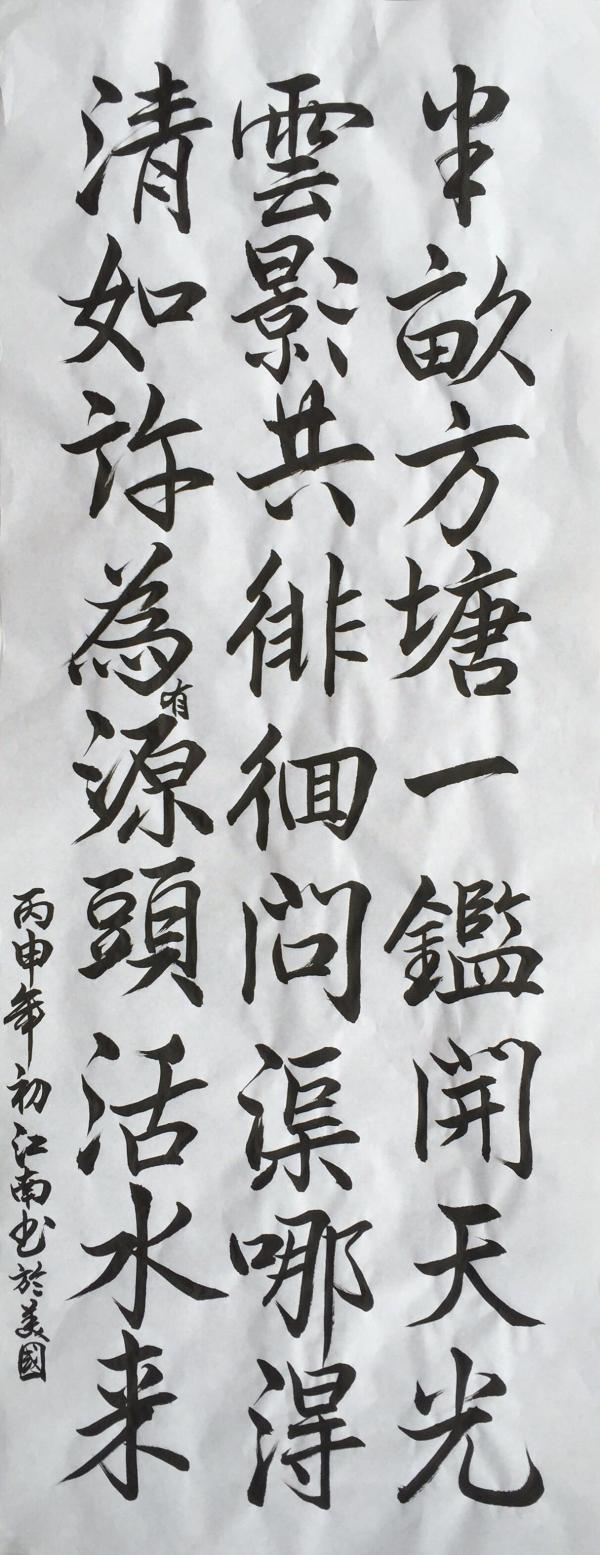 半畝方塘一鑑開天光
雲影共徘徊問渠哪得
清如許為有源頭活水来
丙申年初江南书於美國